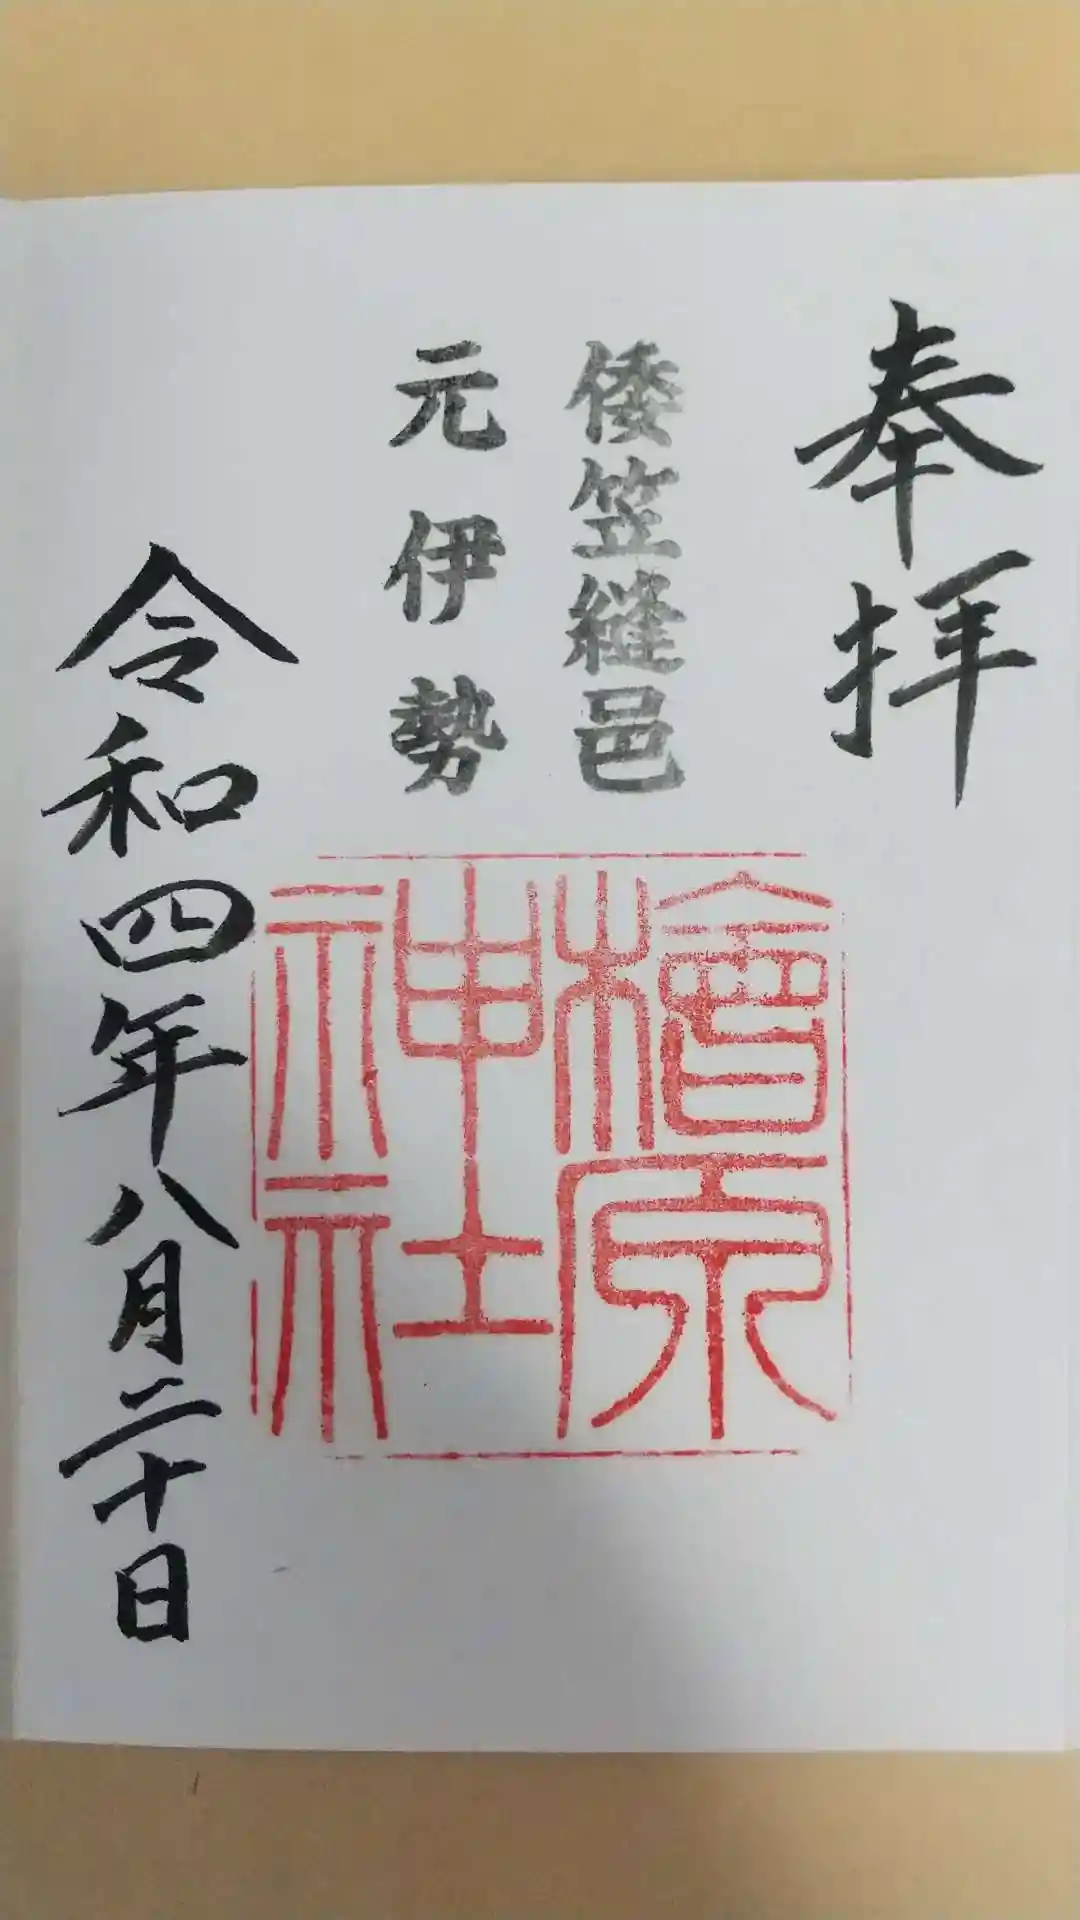 奉拝
倭笠縫邑
元伊勢
檜原神社
令和四年八月二十日